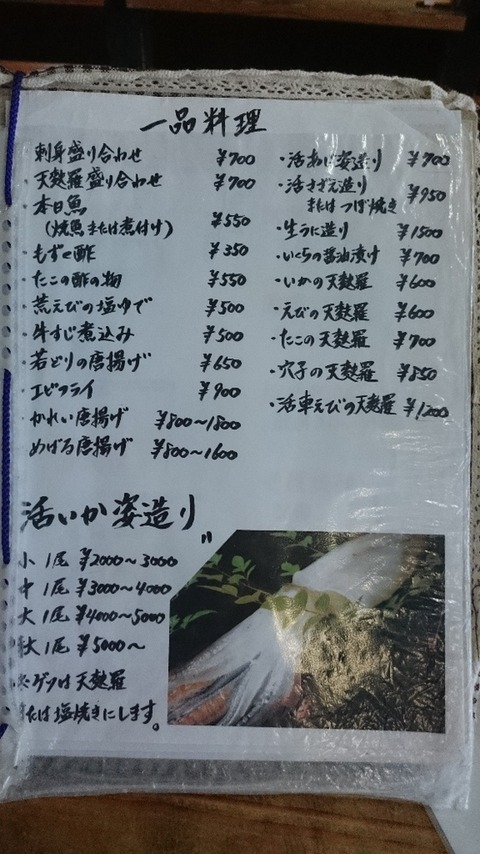 一品料理
刺身盛り合わせ ¥700
・天麩羅盛り合わせ ¥700
・本日魚
(焼魚または煮付け) ¥550
・もずく酢 ¥350
・たこの酢の物 ¥550
・荒えびの塩ゆで ¥500
・牛すじ煮込み ¥500
・若どりの唐揚げ ¥650
・エビフライ ¥900
・かれい唐揚げ ¥800～1800
めばる唐揚げ ¥800～1600
・活あわび姿造り ¥700
・活さざえ造り
またはつぼ焼き ¥950
・生うに造り ¥1500
・いくらの醤油漬け ¥700
・いかの天麩羅 ¥600
・えびの天麩羅 ¥600
・たこの天麩羅 ¥700
・穴子の天麩羅 ¥850
・活車えびの天麩羅 ¥1200
活いか姿造り
小 1尾 ¥2000～3000
中 1尾 ¥3000～4000
大 1尾 ¥4000～5000
特大 1尾 ¥5000～
※ゲソは天麩羅
または塩焼きにします。